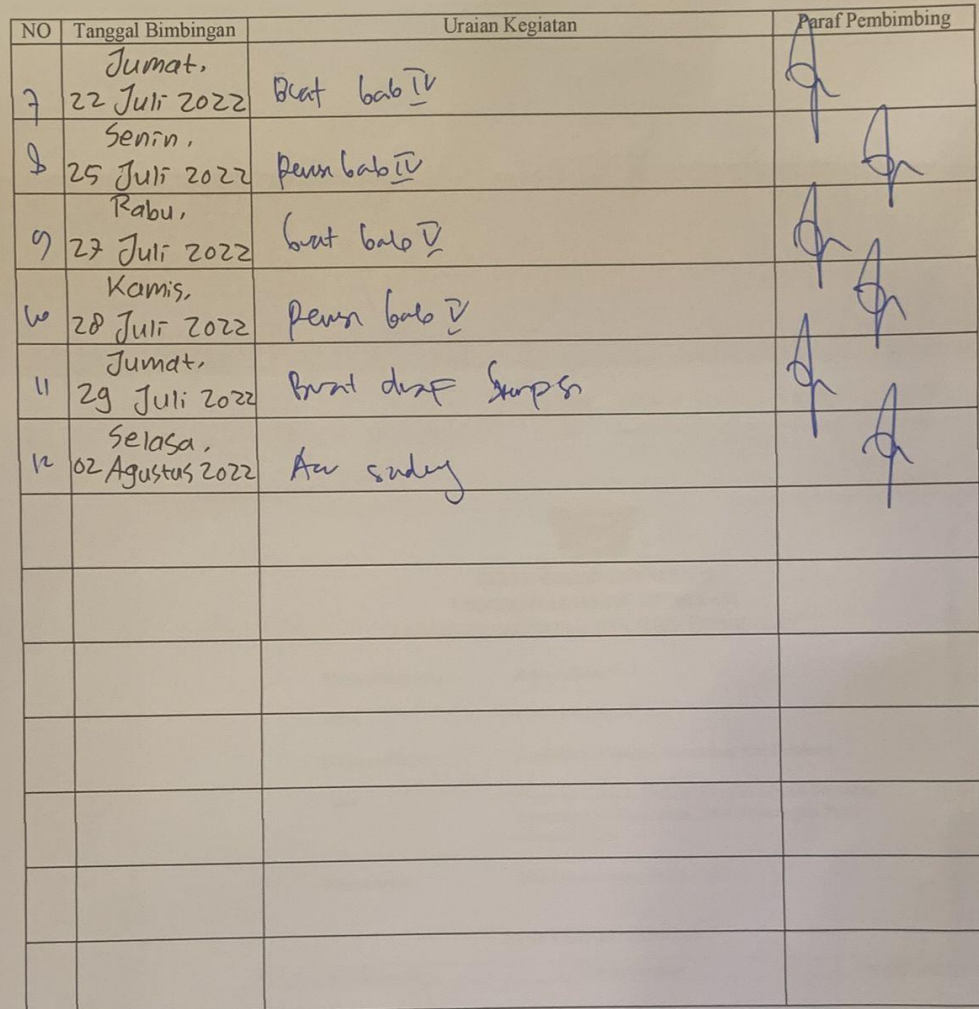 NO Tanggal Bimbingan Uraian Kegiatan Paraf Pembimbing
Jumat,
7 22 Juli 2022 Buat bab IV
Senin,
8 25 Juli 2022 Revisi bab IV
Rabu,
9 27 Juli 2022 buat bab V
Kamis,
10 28 Juli 2022 Revisi bab V
Jumat,
11 29 Juli 2022 Buat draf Skripsi
Selasa,
12 02 Agustus 2022 Acc sidang